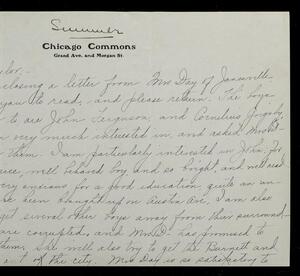 Summer
Chicago Commons
Grand Ave. and Morgan St.
closing a letter from Mrs Day of Janesville
you to read, and please return. The boys
to are John Ferguson, and Cornelius
very much interested in, and asked
them. I am particularly interested in John, for
well behaved boy, and so bright, and well read
very anxious, for a good education, quite an
been brought up on Austin Ave. I am also
get several other boys away from their surround-
are corrupted, and Mrs D. has promised to
them. She will also try to get Burnett and
out of the city. Mrs Day is so